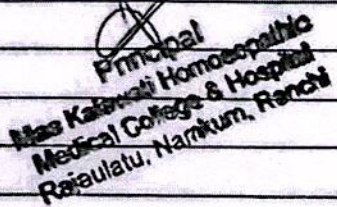 Principal
Maa Kalawati Homoeopathic
Medical College & Hospital
Rajaulatu, Namkum, Ranchi